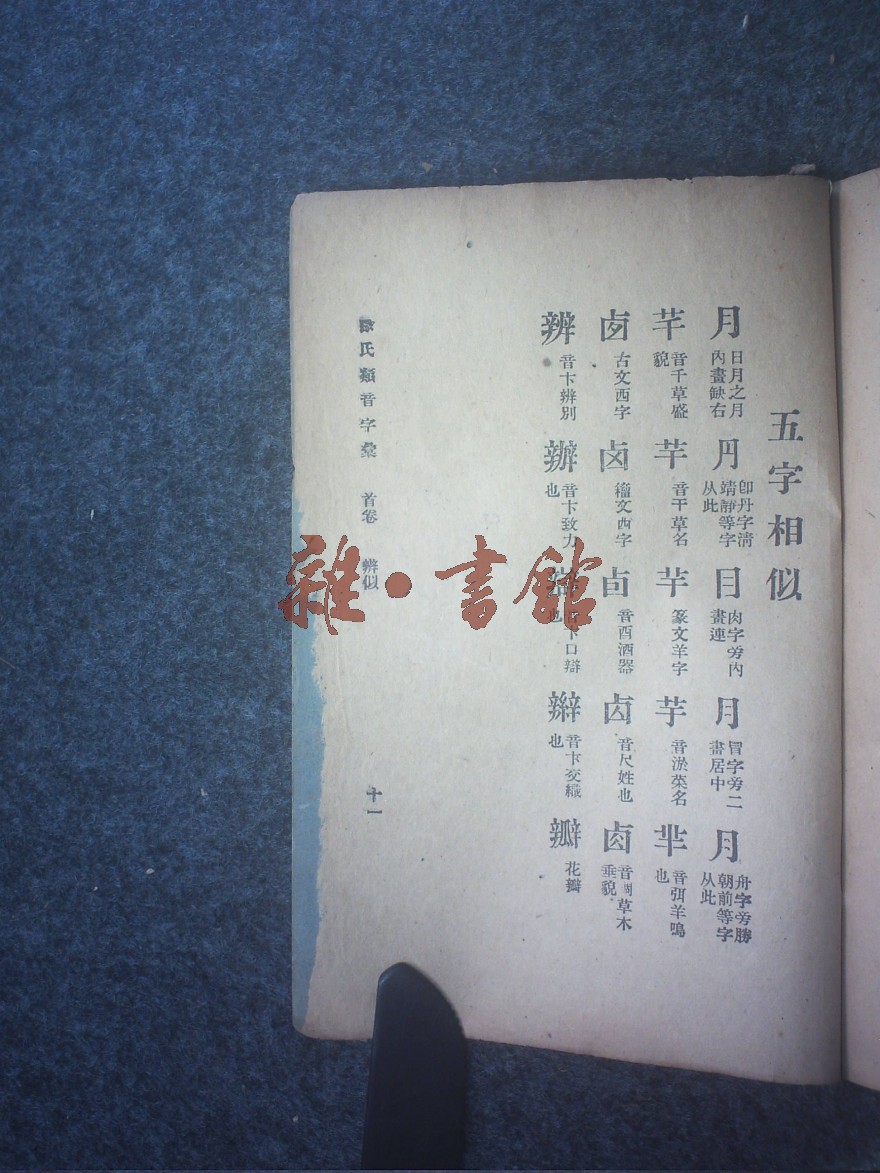 五字相似
月 日月之月內畫缺右
円 卽丹字淸靖靜等字从此
目 肉字旁內畫連
月 冐字旁二畫居中
月 舟字旁勝朝前等字从此
芊 音千草盛貌
芉 音干草名
芈 篆文羊字
芋 音淤菜名
芈 音弭羊鳴也
卤 古文西字
卥 籀文西字
卣 音酉酒器
音尺姓也
卤 音調草木垂貌
辨 音卞辨別
辦 音卞致力也
音卞口辯也
辮 音卞交織也
瓣 花瓣
徐氏類音字彙 首卷 辨似 十一
雜·書館